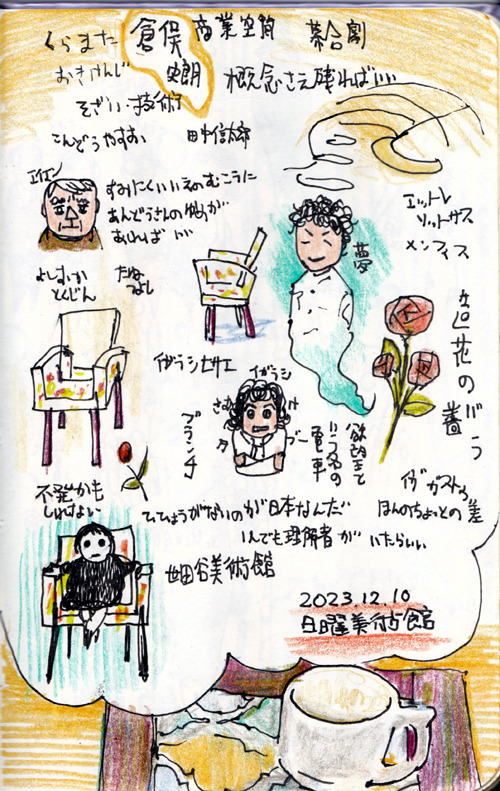 くらまた 倉俣 商業空間 幕合劇
おきけんじ 史朗 概念さえ残ればいい
そざい 技術
こんどうやすお 田中信太郎
すみにくいいえのむこうに
あんどうさんのゆめが
あればいい
エットレ
ソットサス
メンフィス
夢
よしおか
とくじん
イガラシセサエ
イガラシ
造花のバラ
薔
ブランチ
欲望と
いう名の
電車
不発かも
しれない
ひひょうがないのが日本なんだ
1人でも理解者がいたらいい
ほんのちょっとの差
世田谷美術館
2023.12.10
日曜美術館